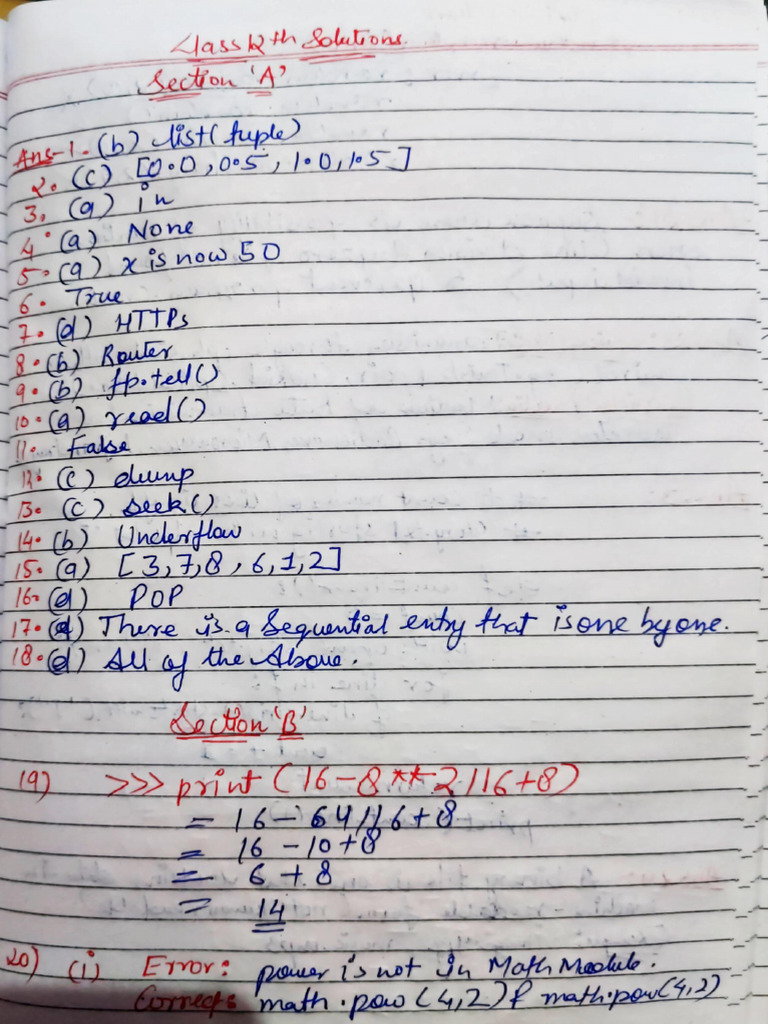 Class 12th Solutions.
Section 'A'
Ans-1. (b) list(tuple)
2. (c) [0.0, 0.5, 1.0, 1.5]
3. (a) in
4. (a) None
5. (a) x is now 50
6. True
7. (d) HTTPs
8. (b) Router
9. (b) fp.tell()
10. (a) read()
11. False
12. (c) dump
13. (c) seek()
14. (b) Underflow
15. (a) [3,7,8,6,1,2]
16. (d) POP
17. (d) There is a Sequential entry that is one by one.
18. (d) All of the Above.
Section 'B'
19) >>> print (16-8**2//6+8)
= 16-64//6+8
= 16-10+8
= 6+8
= 14
20) (i) Error: power is not in Math Module.
Correct: math.pow(4,2) & math.pow(4,2)